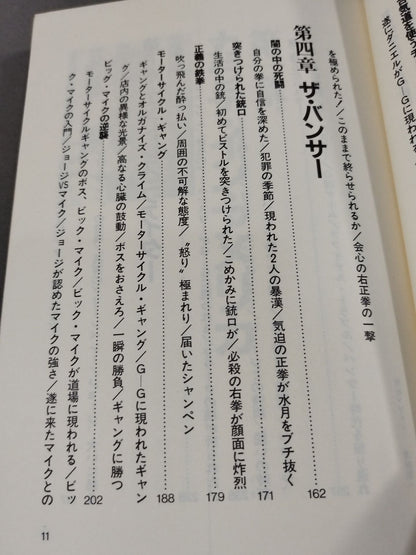 遂にダニエルがG―Gに現われる
を極められた！／このままで終らせられるか／会心の右正拳の一撃
第四章 ザ・バンサー
闇の中の死闘……162
自分の拳に自信を深めた／犯罪の季節／現われた2人の暴漢／気迫の正拳が水月をブチ抜く
突きつけられた銃口……171
生活の中の銃／初めてピストルを突きつけられた／こめかみに銃口が／必殺の右拳が顔面に炸烈
正義の鉄拳……179
吹っ飛んだ酔っ払い／周囲の不可解な態度／〝怒り〟極まれり／届いたシャンペン
モーターサイクル・ギャング……188
ギャングとオルガナイズ・クライム／モーターサイクル・ギャング／G―Gに現われたギャン
グ／店内の異様な光景／高なる心臓の鼓動／ボスをおさえろ／一瞬の勝負／ギャングに勝つ
ビッグ・マイクの逆襲……202
モーターサイクルギャングのボス、ビック・マイク／ビック・マイクが道場に現われる／ビッ
ク・マイクの入門／ジョージVSマイク／ジョージが認めたマイクの強さ／遂に来たマイクとの
11